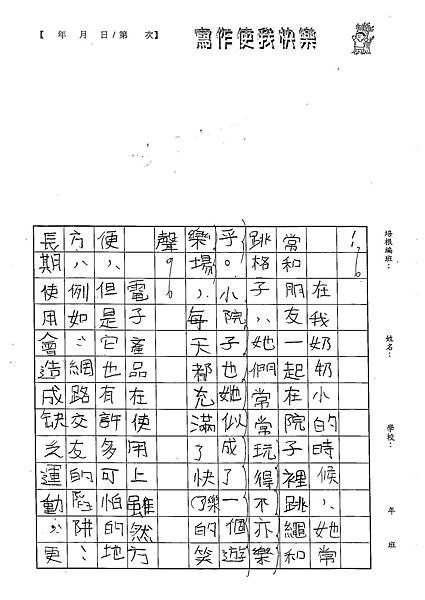 【　年　月　日/第　次】
寫作使我快樂
培根編班：　姓名：　學校：　年　班
！
在我奶奶小的時候，她常
常和朋友一起在院子裡跳繩和
跳格子，她們常常玩得不亦樂
乎。小院子也她似成了一個遊
樂場，每天都充滿了快樂的笑
聲。
電子產品在使用上雖然方
便，但是它也有許多可怕的地
方，例如：網路交友的陷阱、
長期使用會造成缺乏運動，更